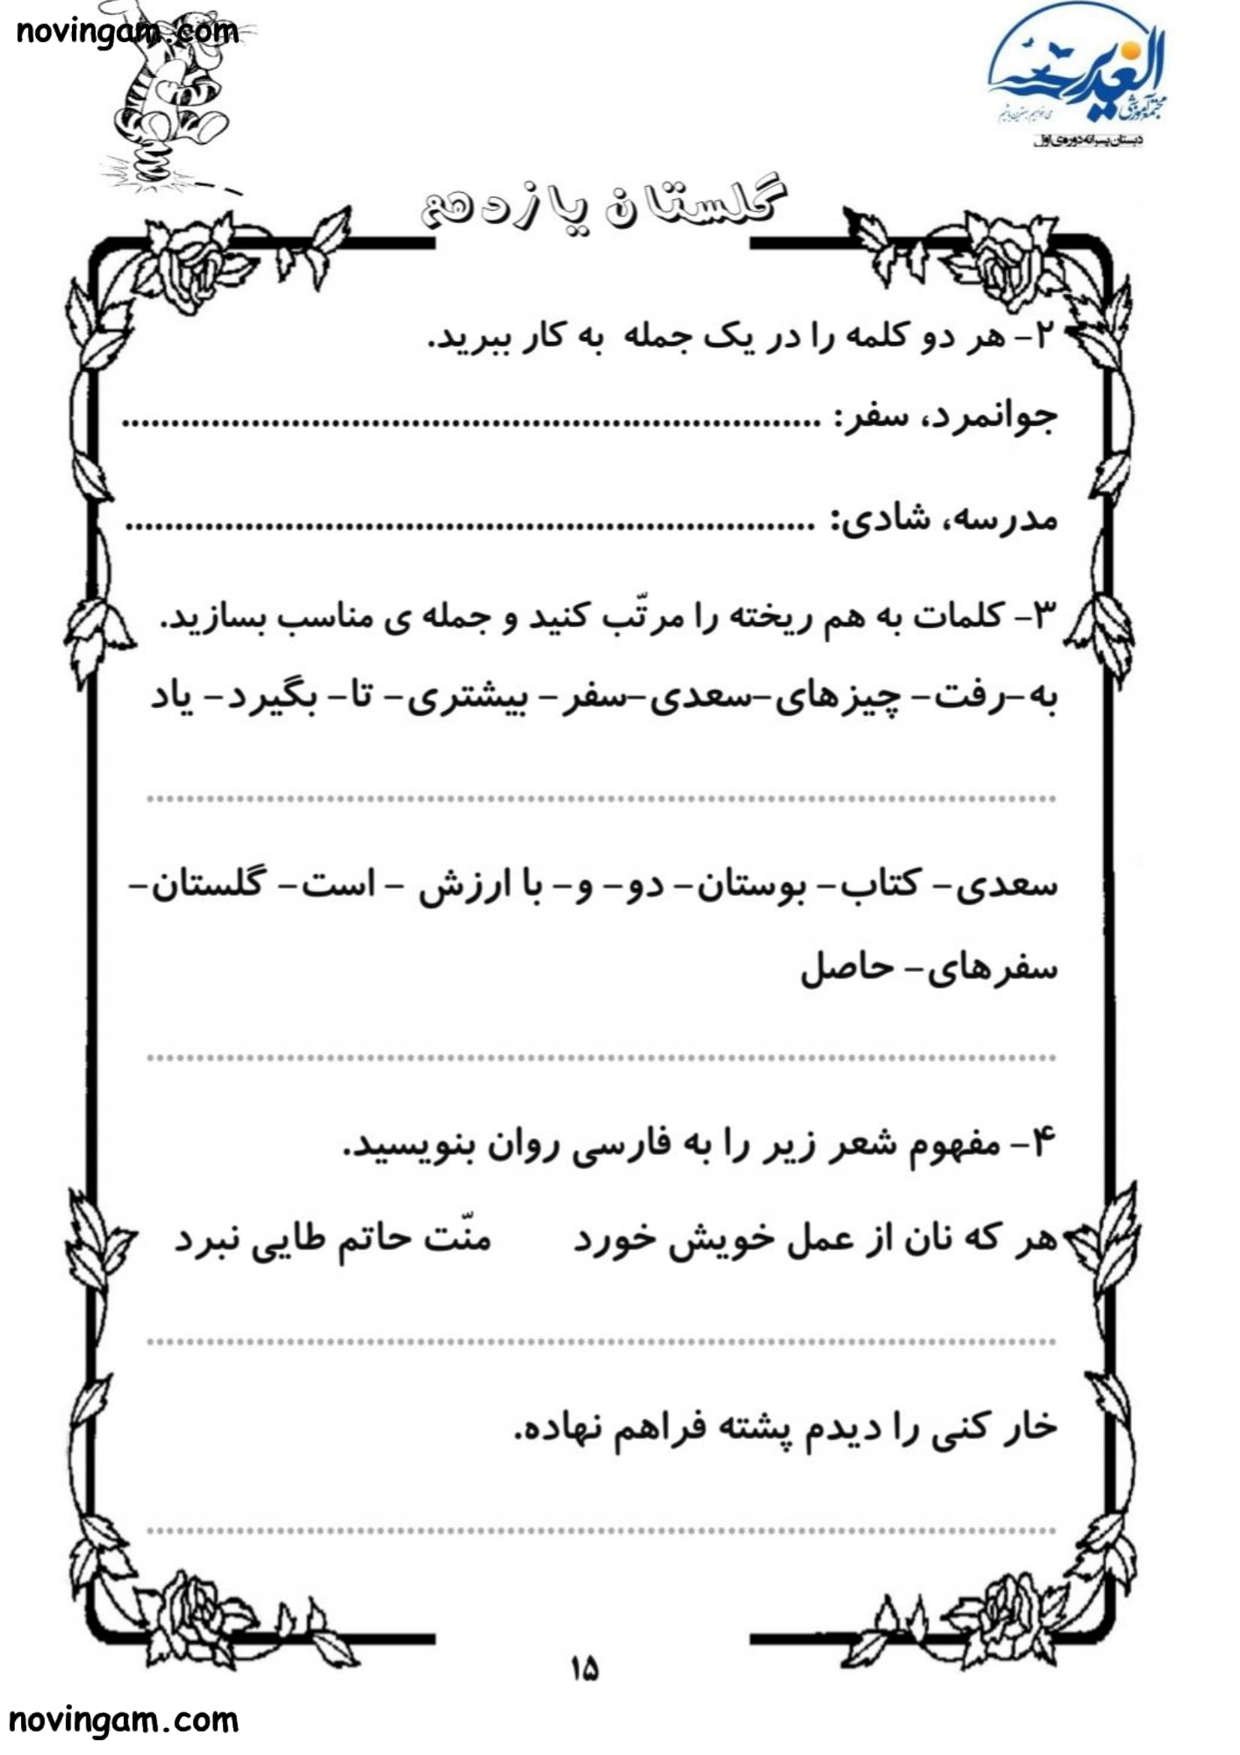 novingam.com
الغدیر
مجتمع آموزشی
دبستان پسرانه دوره‌ی اول
گلستان یازدهم
۲- هر دو کلمه را در یک جمله به کار ببرید.
جوانمرد، سفر: ......................................................................
مدرسه، شادی: .....................................................................
۳- کلمات به هم ریخته را مرتّب کنید و جمله ی مناسب بسازید.
به-رفت- چیزهای-سعدی-سفر- بیشتری- تا- بگیرد- یاد
...........................................................................................
سعدی- کتاب- بوستان- دو- و- با ارزش - است- گلستان-
سفرهای- حاصل
...........................................................................................
۴- مفهوم شعر زیر را به فارسی روان بنویسید.
هر که نان از عمل خویش خورد منّت حاتم طایی نبرد
...........................................................................................
خار کنی را دیدم پشته فراهم نهاده.
...........................................................................................
۱۵
novingam.com